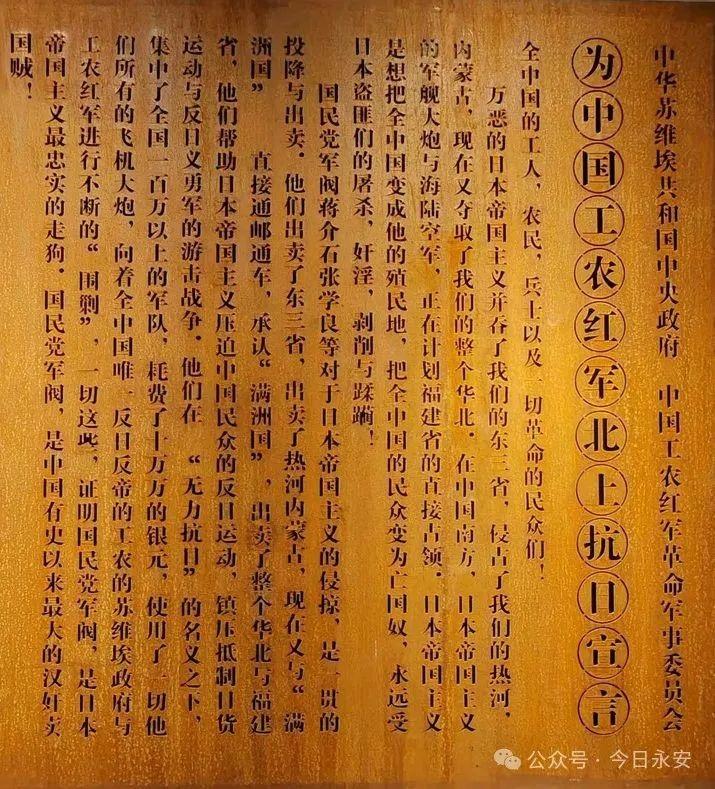 中华苏维埃共和国中央政府 中国工农红军革命军事委员会
为中国工农红军北上抗日宣言
全中国的工人，农民，兵士以及一切革命的民众们！
万恶的日本帝国主义并吞了我们的东三省，侵占了我们的热河，
内蒙古，现在又夺取了我们的整个华北．在中国南方，日本帝国主义
的军舰大炮与海陆空军，正在计划福建省的直接占领．日本帝国主义
是想把全中国变成他的殖民地，把全中国的民众变为亡国奴，永远受
日本盗匪们的屠杀，奸淫，剥削与蹂躏！
国民党军阀蒋介石张学良等对于日本帝国主义的侵掠，是一贯的
投降与出卖．他们出卖了东三省，出卖了热河内蒙古，现在又与“满
洲国” 直接通邮通车，承认“满洲国”，出卖了整个华北与福建
省，他们帮助日本帝国主义压迫中国民众的反日运动，镇压抵制日货
运动与反日义勇军的游击战争．他们在 “无力抗日” 的名义之下，
集中了全国一百万以上的军队，耗费了十万万的银元，使用了一切他
们所有的飞机大炮，向着全中国唯一反日反帝的工农的苏维埃政府与
工农红军进行不断的“围剿”，一切这些，证明国民党军阀，是日本
帝国主义最忠实的走狗．国民党军阀，是中国有史以来最大的汉奸卖
国贼！
公众号·今日永安